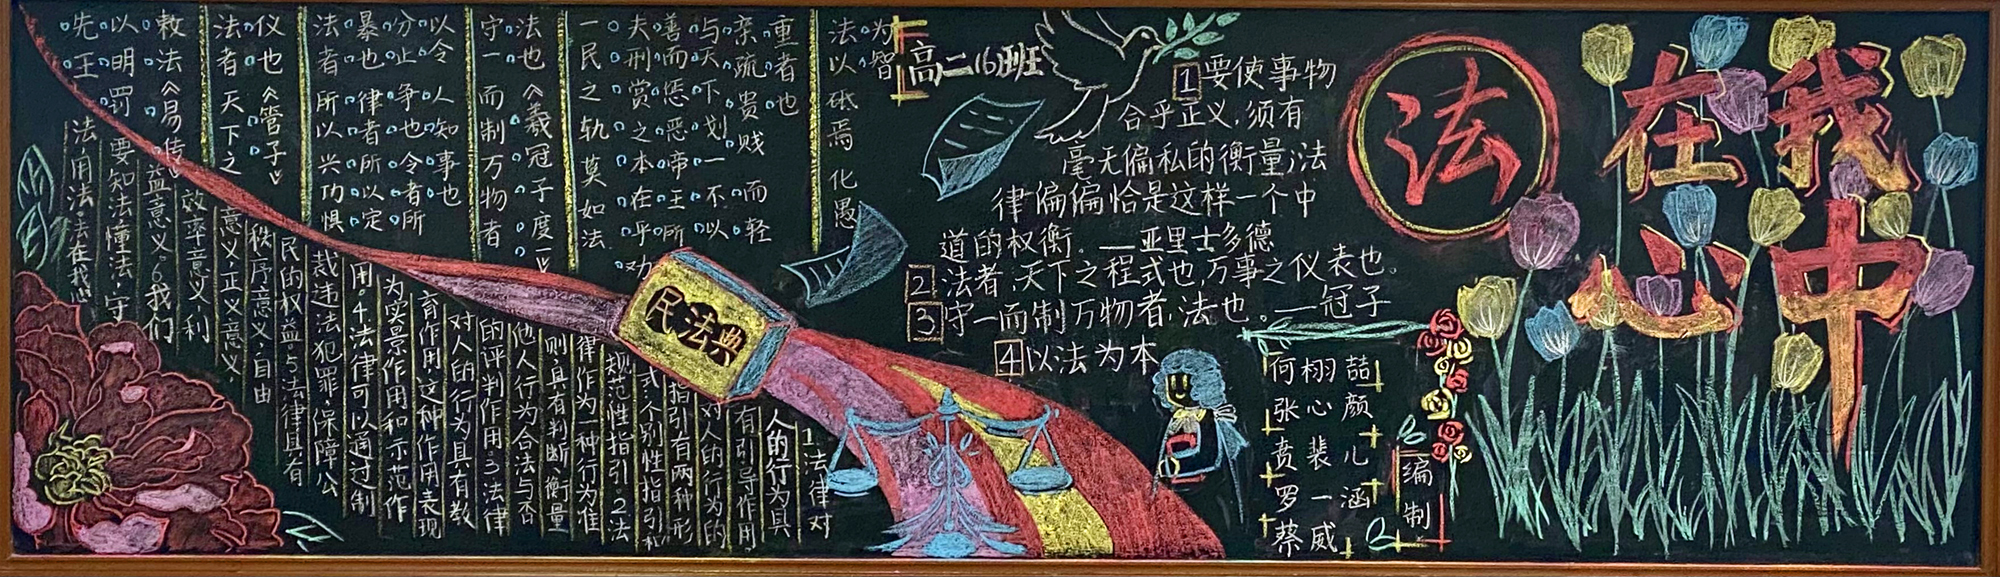 法
在我
心中
高二(6)班
1 要使事物
合乎正义,须有
毫无偏私的衡量;法
律偏偏恰是这样一个中
道的权衡。——亚里士多德
2 法者,天下之程式也,万事之仪表也。
3 守一而制万物者,法也。——冠子
4 以法为本
何栩喆
张心颜
贲裴儿
罗一涵
蔡威
编制
为智
法以砥焉 化愚
重者也
亲疏贵贱 而轻
与天下划一不以
善而惩恶帝王所
夫刑赏之本在乎劝
一民之轨莫如法
法也《羲冠子度一》
守一而制万物者
以令人知事也
分止争也令者所
暴也律者所以定
法者所以兴功惧
仪也《管子》
法者天下之
敕法《易传》
以明罚
先王
民法典
1法律对
人的行为具
有引导作用,
对人的行为的
指引有两种形
式:个别性指引和
规范性指引.2法
律作为一种行为准
则具有判断、衡量
他人行为合法与否
的评判作用.3法律
对人的行为具有教
育作用这种作用表现
为实景作用和示范作
用。4法律可以通过制
裁违法犯罪,保障公
民的权益.5法律具有
秩序意义.自由
意义.正义意义,
效率意义.利
益意义。6我们
要知法懂法.守
法用法。法在我心